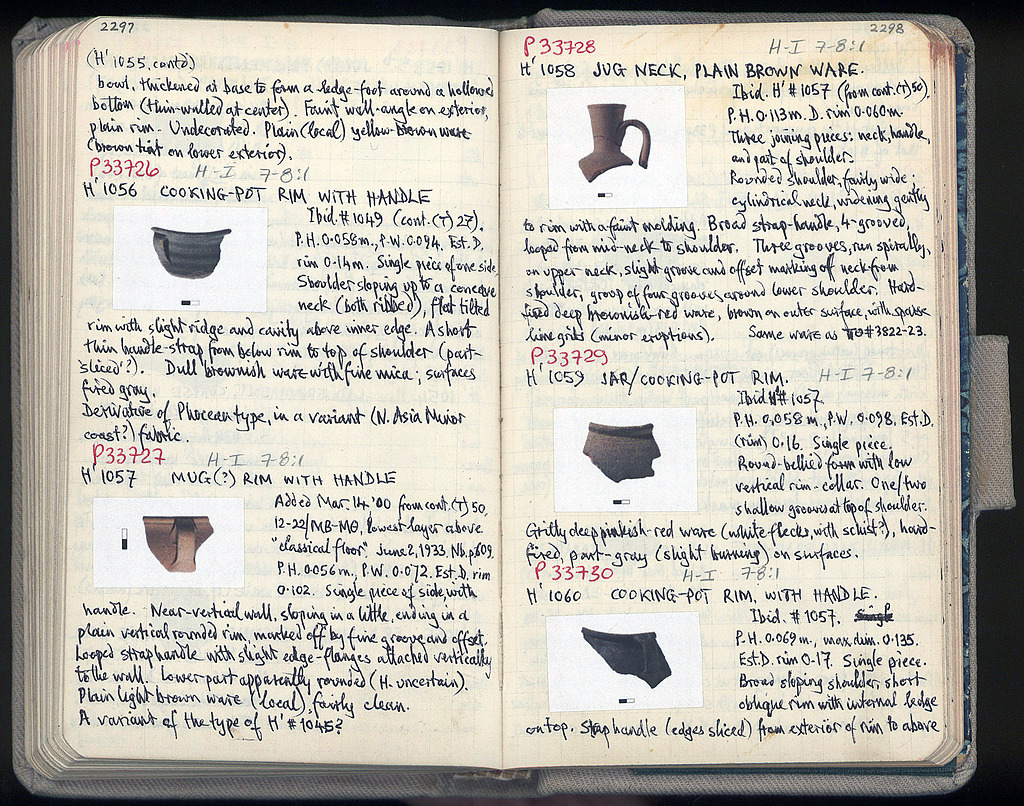 2297
(H' 1055, contd)
bowl, thickened at base to form a ledge-foot around a hollowed
bottom (thin-walled at center). Faint wall-angle on exterior,
plain rim. Undecorated. Plain (local) yellow-brown ware
(brown tint on lower exterior).
P33726 H-I 7-8:1
H' 1056 COOKING-POT RIM WITH HANDLE
Ibid. #1049 (cont. (T) 27).
P.H. 0.058m., P.W. 0.094. Est. D.
rim 0.14m. Single piece of one side.
Shoulder sloping up to a concave
neck (both ribbed), flat tilted
rim with slight ridge and cavity above inner edge. A short
thin handle-strap from below rim to top of shoulder (part-
sliced?). Dull brownish ware with fine mica; surfaces
fired gray.
Derivative of Phocean type, in a variant (N. Asia Minor
coast?) fabric.
P33727 H-I 7-8:1
H' 1057 MUG(?) RIM WITH HANDLE
Added Mar. 14 '00 from cont. (T) 50,
12-22/MB-MΘ, lowest layer above
"classical floor", June 2, 1933, Nb. p.609.
P.H. 0.056m., P.W. 0.072. Est. D. rim
0.102. Single piece of side, with
handle. Near-vertical wall, sloping in a little, ending in a
plain vertical rounded rim, marked off by fine groove and offset.
Looped strap handle with slight edge-flanges attached vertically
to the wall. Lower part apparently rounded (H. uncertain).
Plain light brown ware (local), fairly clean.
A variant of the type of H' #1045?
2298
P33728 H-I 7-8:1
H' 1058 JUG NECK, PLAIN BROWN WARE.
Ibid. H' #1057 (from cont. (T) 50).
P.H. 0.113m. D. rim 0.060m.
Three joining pieces: neck, handle,
and part of shoulder.
Rounded shoulder, fairly wide;
cylindrical neck, widening gently
to rim with a faint molding. Broad strap-handle, 4-grooved,
looped from mid-neck to shoulder. Three grooves, run spirally,
on upper neck, slight groove and offset marking off neck from
shoulder, group of four grooves around lower shoulder. Hard-
fired deep brownish-red ware, brown on outer surface, with sparse
lime grits (minor eruptions). Same ware as 3822-23.
P33729
H' 1059 JAR/COOKING-POT RIM. H-I 7-8:1
Ibid H' # 1057.
P.H. 0.058m., P.W. 0.098. Est. D.
(rim) 0.16. Single piece.
Round-bellied form with low
vertical rim-collar. One/two
shallow grooves at top of shoulder.
Gritty deep pinkish-red ware (white flecks, with schist?), hard-
fired, part-gray (slight burning) on surfaces.
P33730 H-I 7-8:1
H' 1060 COOKING-POT RIM, WITH HANDLE.
Ibid. #1057. Single
P.H. 0.069m., max. dim. 0.135.
Est. D. rim 0.17. Single piece.
Broad sloping shoulder, short
oblique rim with internal ledge
on top. Strap handle (edges sliced) from exterior of rim to above